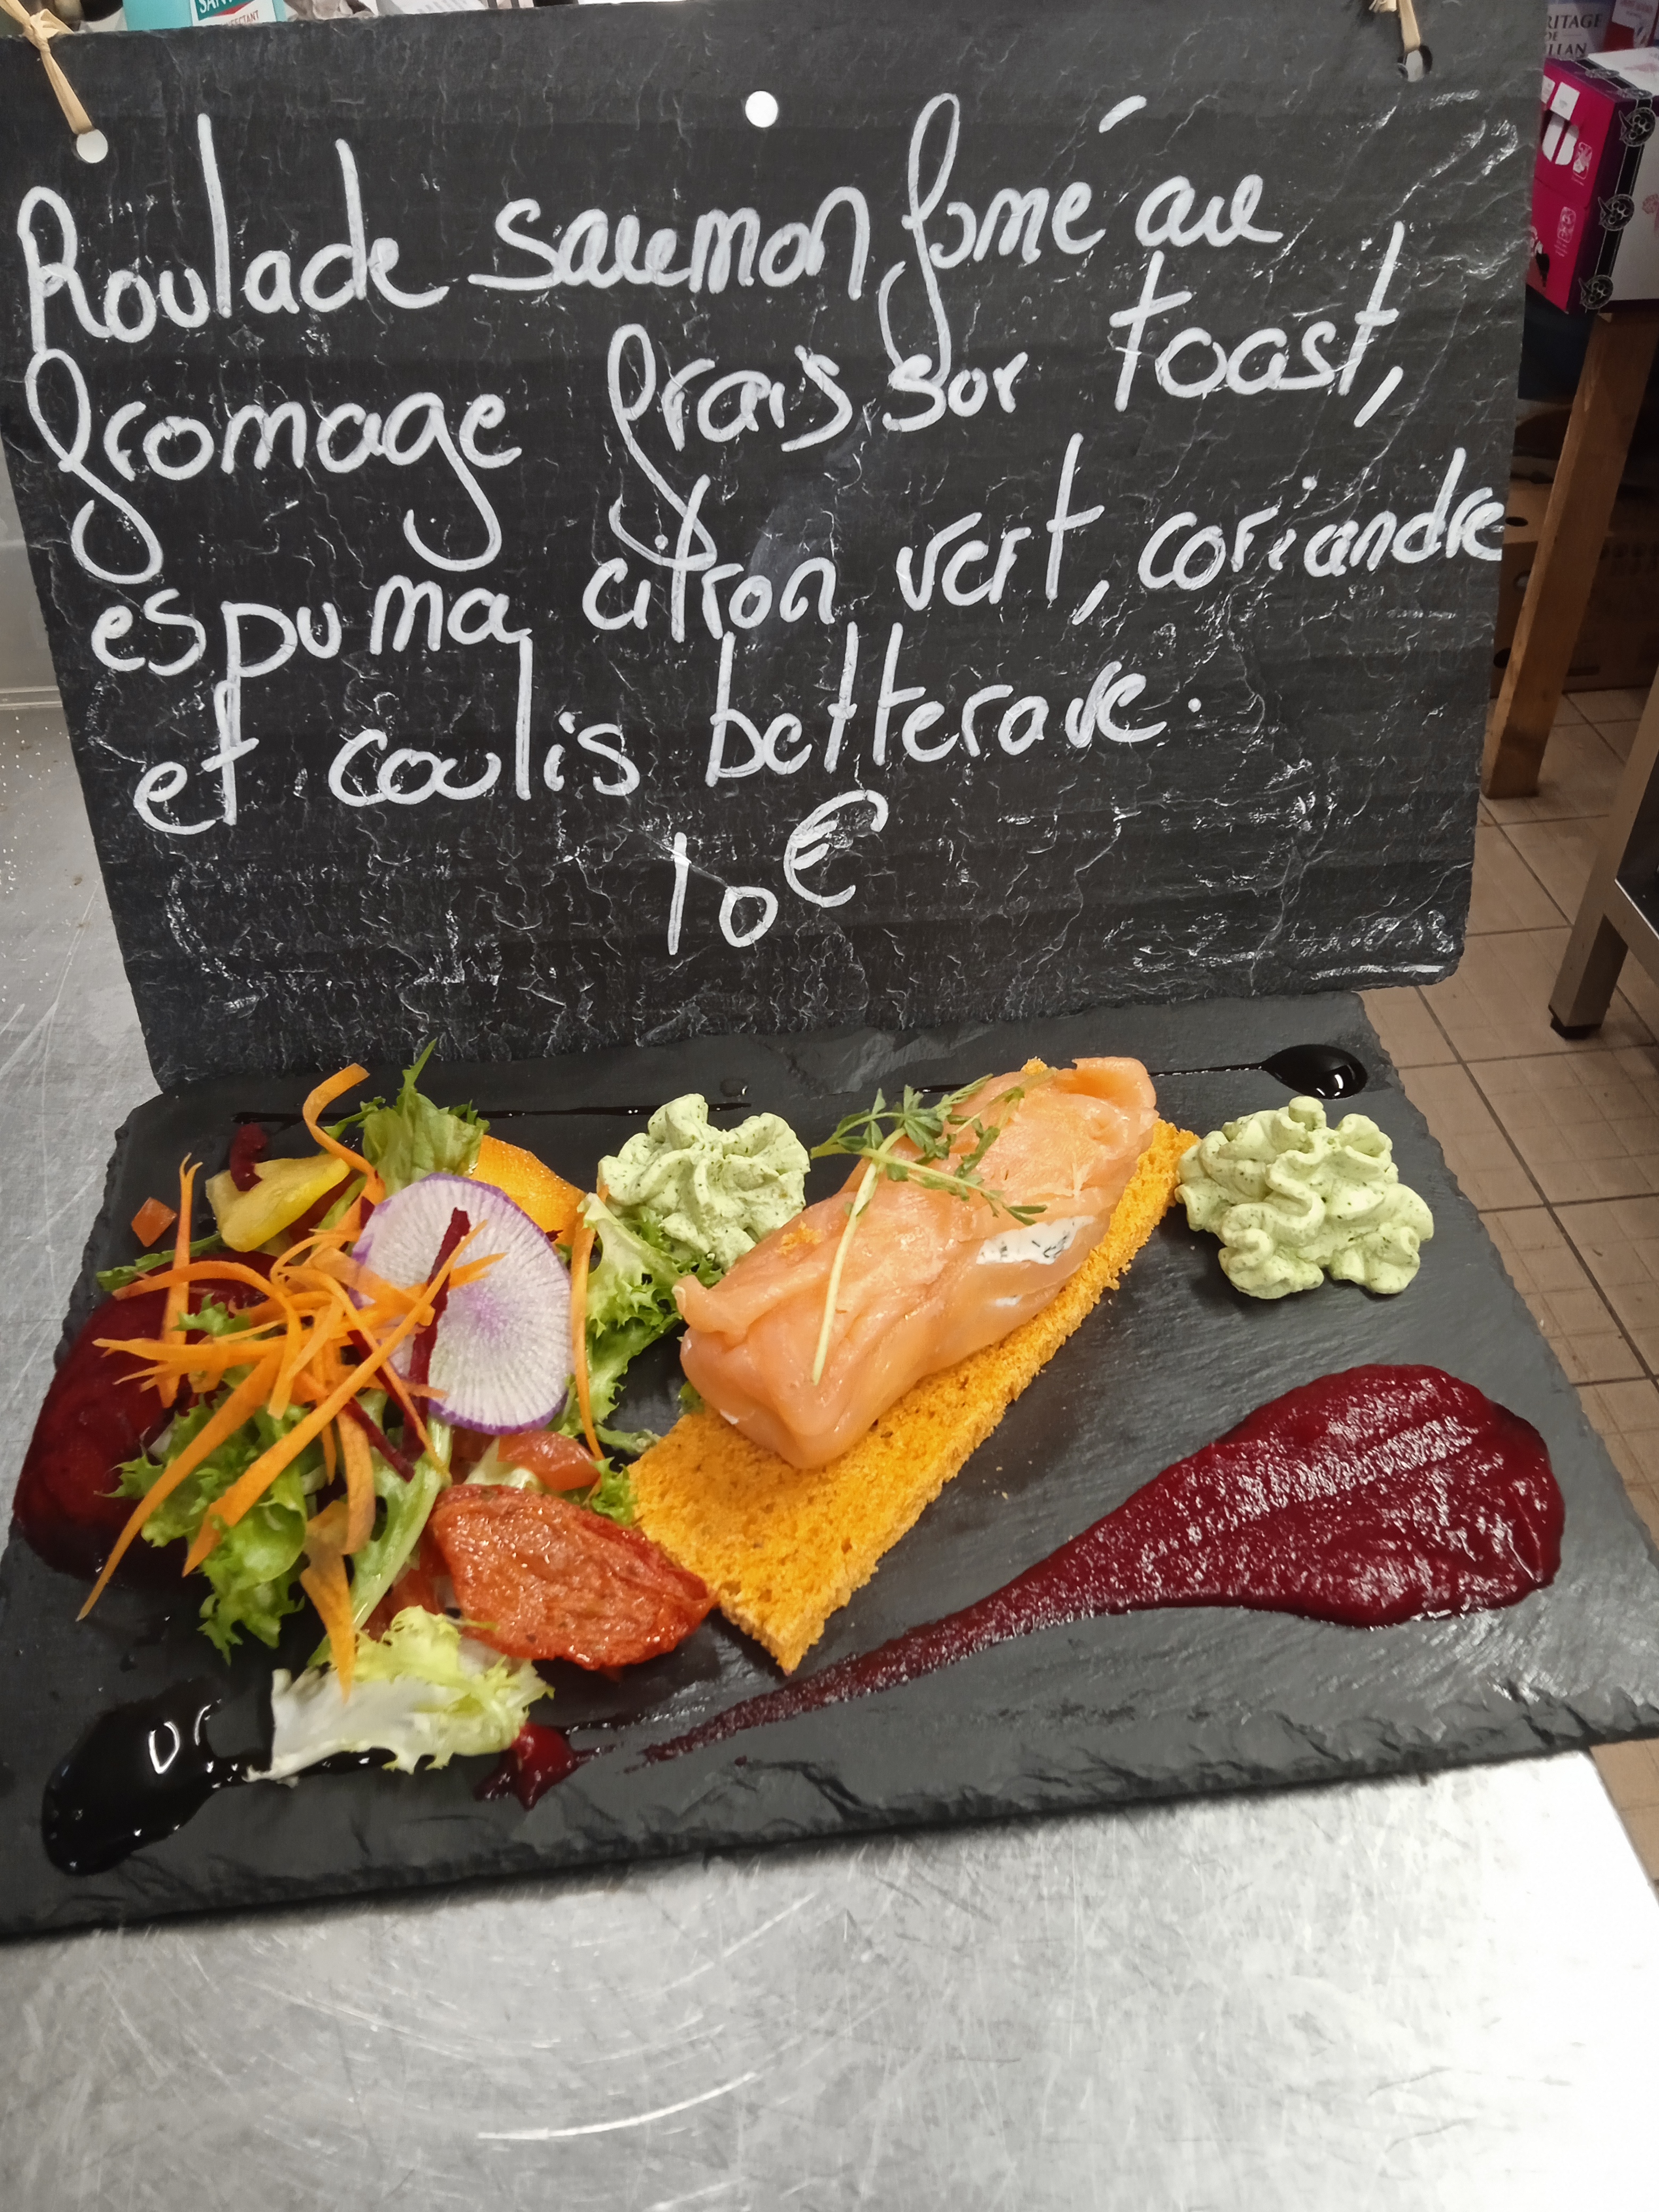 Roulade saumon fumé au
fromage frais sur toast,
espuma citron vert, coriandre
et coulis betterave.
10€
RITAGE
DE
LLAN